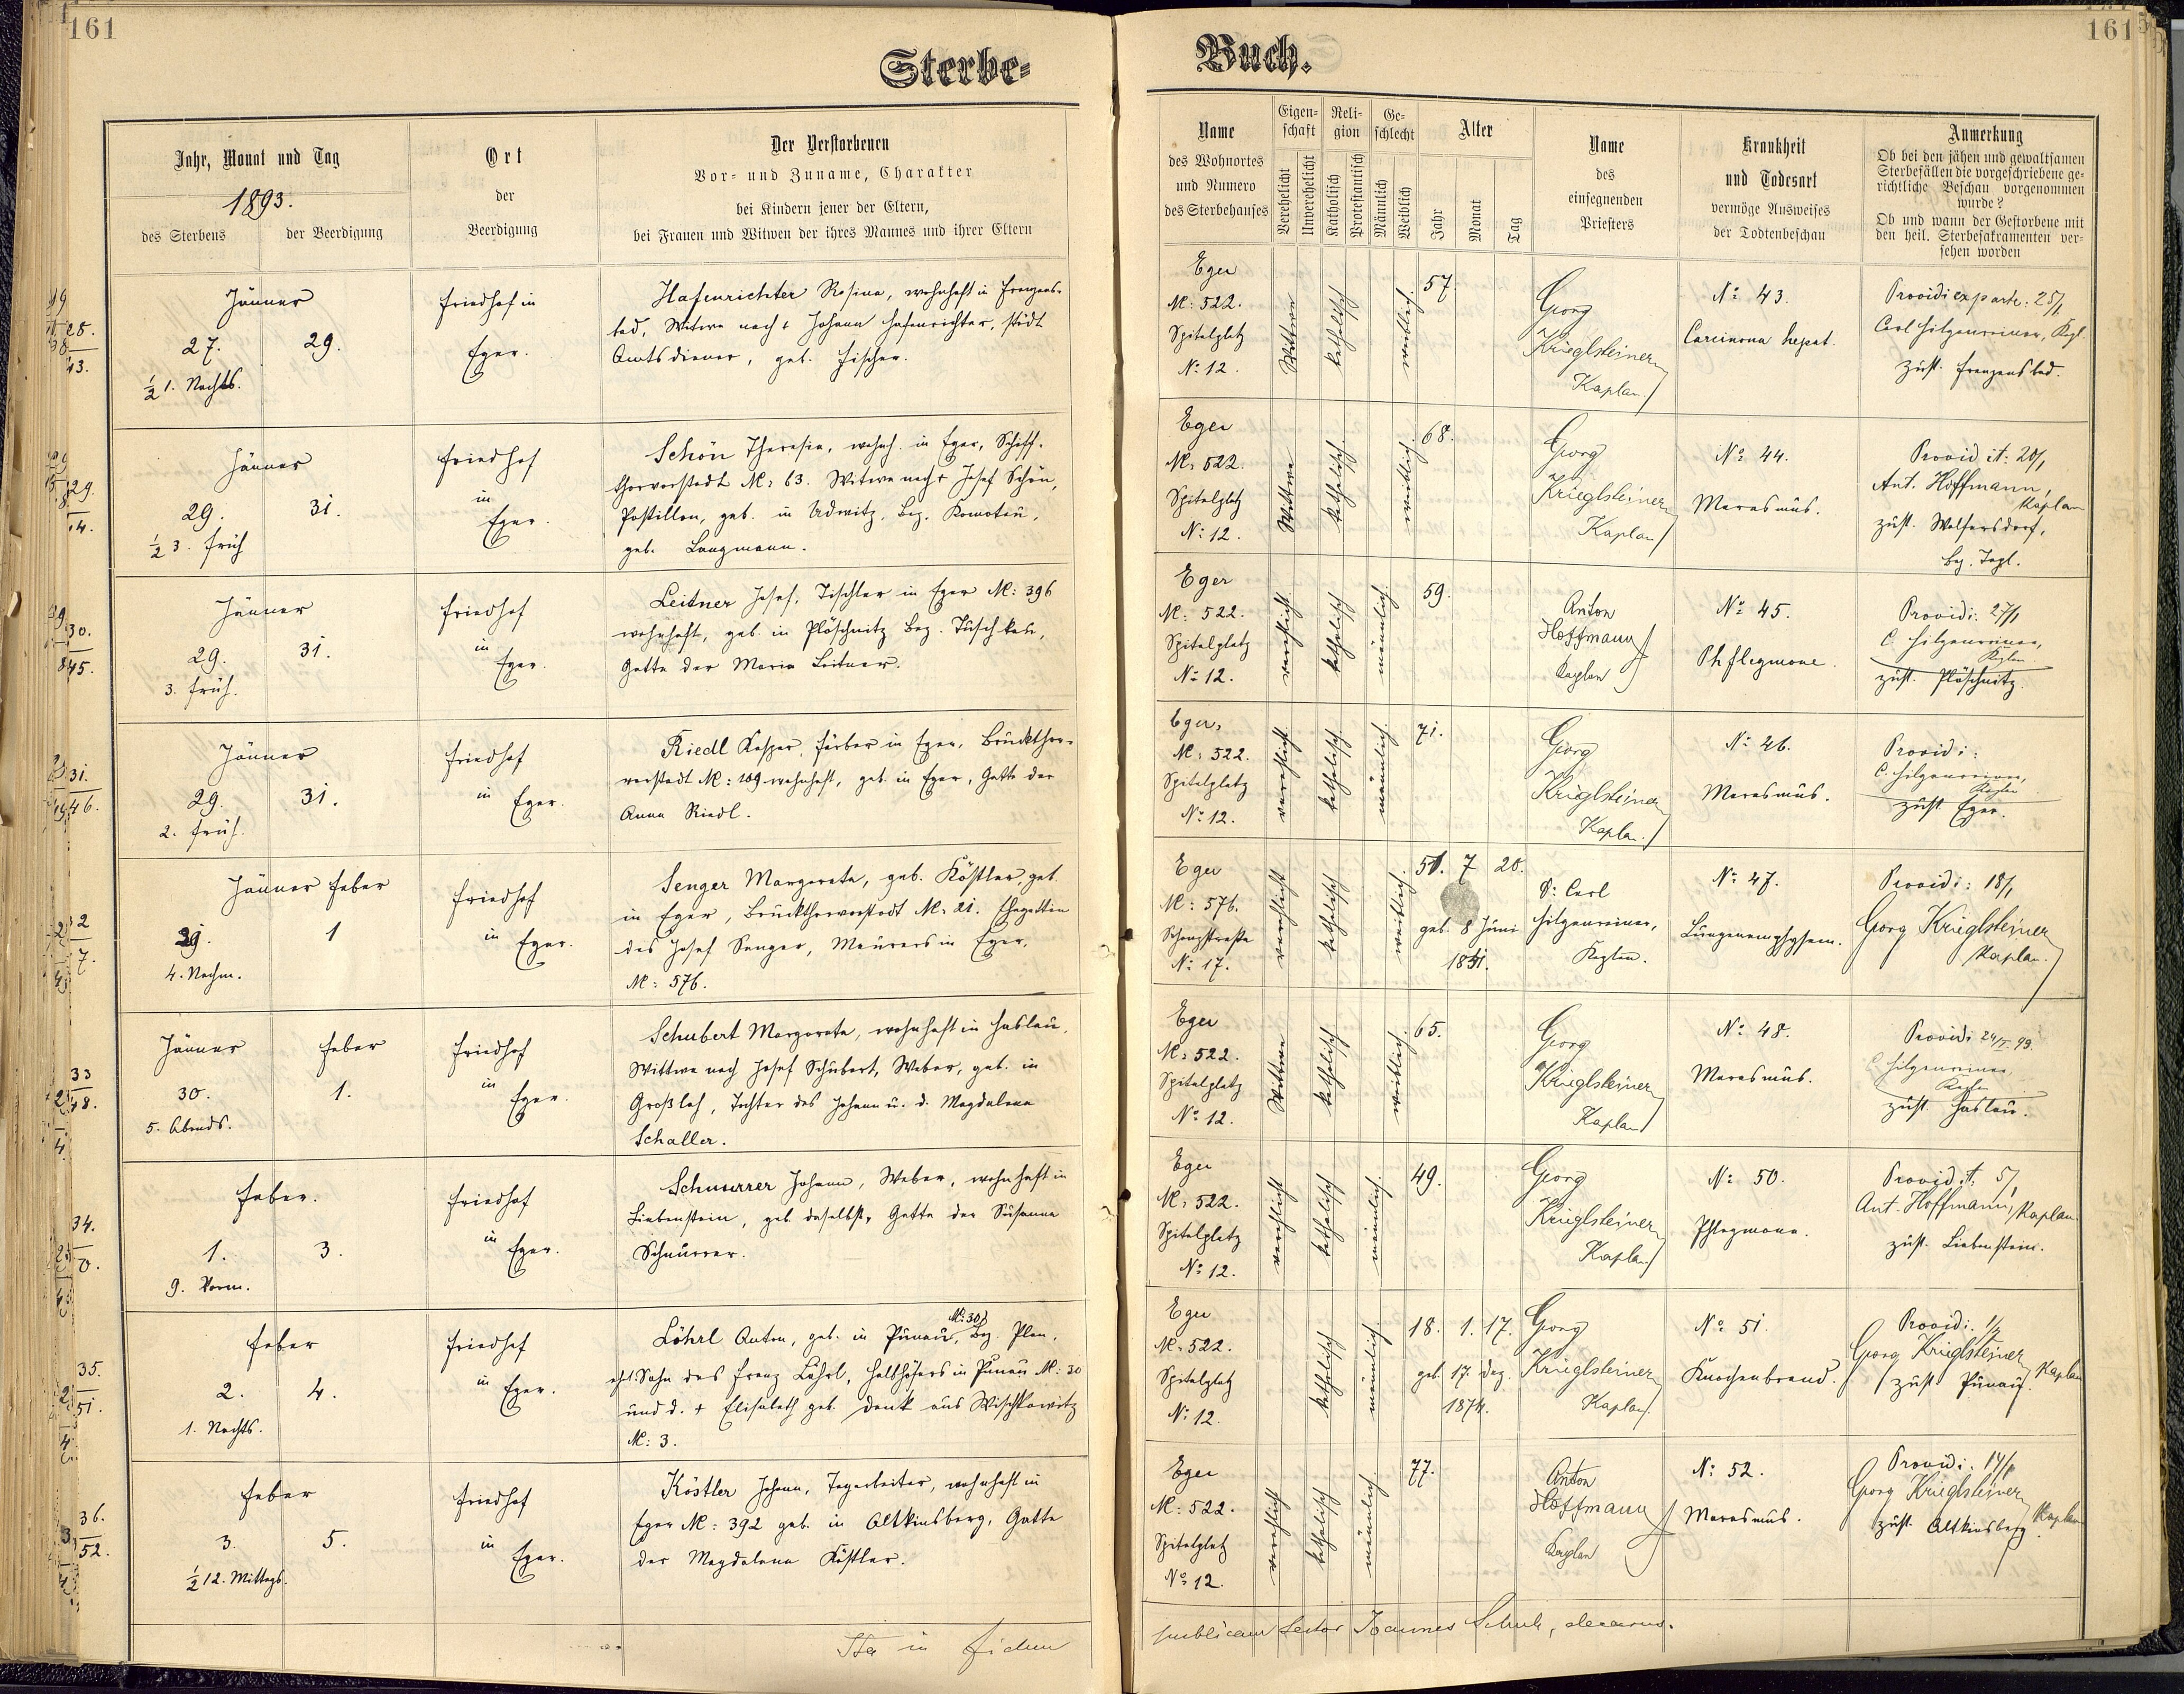 161
161
Sterbe=
Buch.
Jahr, Monat und Tag
1893.
des Sterbens
der Beerdigung
Ort
der
Beerdigung
Der Verstorbenen
Vor- und Zuname, Charakter
bei Kindern jener der Eltern,
bei Frauen und Witwen der ihres Mannes und ihrer Eltern
Name
des Wohnortes
und Numero
des Sterbehauses
Eigen-
schaft
Verehelicht
Unverehelicht
Reli-
gion
Katholisch
Protestantisch
Ge-
schlecht
Männlich
Weiblich
Alter
Jahr
Monat
Tag
Name
des
einsegnenden
Priesters
Krankheit
und Todesart
vermöge Ausweises
der Todtenbeschau
Anmerkung
Ob bei den jähen und gewaltsamen
Sterbefällen die vorgeschriebene ge-
richtliche Beschau vorgenommen
wurde?
Ob und wann der Gestorbene mit
den heil. Sterbesakramenten ver-
sehen worden
Jänner
27.
29.
½ 1. Nachts.
Friedhof in
Eger.
Hafenrichter Rosina, wohnhaft in Franzens-
bad, Witwe nach + Johann Hafenrichter, städt
Amtsdiener, geb. Fischer.
Eger
N: 522.
Spitalplatz
No 12.
Wittwe
katholisch
weiblich.
57.
Georg
Krieglsteiner
Kaplan
No 43.
Carcinoma hepat.
Providi ex parte: 25/1
Carl Hilgenreiner, Kapl.
zust. Franzensbad.
Jänner
29.
31.
½ 3. früh
Friedhof
in
Eger.
Schön Theresia, wohnh. in Eger, Schiff-
thorvorstadt N: 63. Witwe nach + Josef Schön,
Postillon, geb. in Udwitz, Bez. Komotau,
geb. Langmann.
Eger
N: 522.
Spitalplatz
No 12.
Wittwe
katholisch
weiblich.
68.
Georg
Krieglsteiner
Kaplan
No 44.
Marasmus.
Provid. it: 20/1
Ant. Hoffmann,
Kaplan
zust. Wolfersdorf,
Jänner
29.
31.
3. früh.
Friedhof
in
Eger.
Leitner Josef, Tischler in Eger N: 396
wohnhaft, geb. in Plöschnitz Bez. Tuschkau,
Gatte der Maria Leitner.
Eger
N: 522.
Spitalplatz
No 12.
verehlicht
katholisch
männlich.
59.
Anton
Hoffmann
Kaplan
No 45.
Phflegmone.
Providi: 27/1
C. Hilgenreiner,
Kaplan
zust. Plöschnitz.
Jänner
29.
31.
2. früh.
Friedhof
in Eger.
Riedl Kaspar, Färber in Eger, Bruckthor-
vorstadt N: 109 wohnhaft, geb. in Eger, Gatte der
Anna Riedl.
Eger,
N: 522.
Spitalplatz
No 12.
verehlicht
katholisch
männlich.
71.
Georg
Krieglsteiner
Kaplan
No 46.
Marasmus.
Providi:
C. Hilgenreiner,
Kaplan
zust Eger.
Jänner Feber
29.
1
4. Nachm.
Friedhof
in Eger.
Senger Margareta, geb. Köstler, geb.
in Eger, Bruckthorvorstadt N: 21. Ehegattin
des Josef Senger, Maurers in Eger,
N: 576.
Eger
N: 576.
Schanzstraße
No 17.
verehlicht
katholisch
weiblich.
51. 7 20.
geb. 8 Juni
1841.
Dr Carl
Hilgenreiner,
Kaplan.
No 47.
Lungenemphysem.
Providi: 18/1
Georg Krieglsteiner
Kaplan.
Jänner
Feber
30.
1.
5. Abends.
Friedhof
in
Eger.
Schubert Margareta, wohnhaft in Haslau,
Wittwe nach Josef Schubert, Weber, geb. in
Großloh, Tochter des Johann u. d. Magdalena
Schaller.
Eger
N: 522.
Spitalplatz
No 12.
Wittwe
katholisch
weiblich.
65.
Georg
Krieglsteiner
Kaplan
No 48.
Marasmus.
Providi 24/I. 93
C Hilgenreiner,
Kaplan
zust. Haslau.
Feber.
1.
3.
9. Vorm.
Friedhof
in
Eger.
Schnurrer Johann, Weber, wohnhaft in
Liebenstein, geb. daselbst, Gatte der Susanna
Schnurrer.
Eger
N: 522.
Spitalplatz
No 12.
verehlicht
katholisch
männlich.
49.
Georg
Krieglsteiner
Kaplan
No 50.
Phlegmone.
Provid. it. 5/1
Ant. Hoffmann, Kaplan.
zust. Liebenstein.
Feber
2.
4.
1. Nachts.
Friedhof
in Eger.
N: 30
Löhrl Anton, geb. in Punau, Bez. Plan,
ehl. Sohn des Franz Löhrl, Halbhöfers in Punau N: 30
und d. + Elisabeth geb. Denk aus Wischkowitz
N: 3.
Eger
N: 522.
Spitalplatz
No 12.
katholisch
männlich.
18. 1. 17.
geb. 17. Dez.
1874.
Georg
Krieglsteiner
Kaplan.
No 51.
Knochenbrand.
Providi: 1/2
Georg Krieglsteiner
Kaplan
zust Punau.
Feber
3.
5.
½ 12. Mittags.
Friedhof
in
Eger.
Köstler Johann, Tagarbeiter, wohnhaft in
Eger N: 392 geb. in Altkinsberg, Gatte
der Magdalena Köstler.
Eger
N: 522.
Spitalplatz
No 12.
verehlicht
katholisch
männlich.
77.
Anton
Hoffmann
Kaplan
No 52.
Marasmus.
Providi: 14/1
Georg Krieglsteiner
Kaplan
zust. Altkinsberg.
Ita in fidem
publicam testor Joannes Schuh, decanus.